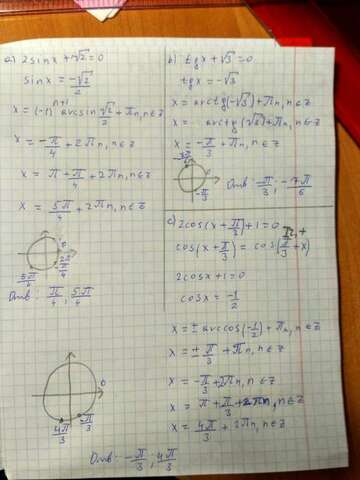 a) 2sinx+√2=0
sinx = -√2/2
x = (-1)ⁿ⁺¹ arcsin √2/2 + πn, n∈z
x = -π/4 + 2πn, n∈z
x = π + π/4 + 2πn, n∈z
x = 5π/4 + 2πn, n∈z
0
5π/4
Отв: π/4; 5π/4
b) tgx + √3 = 0
tgx = -√3
x = arctg(-√3) + πn, n∈z
x = - arctg(√3) + πn, n∈z
x = -π/3 + πn, n∈z
-π/3
Отв -π/3; -7π/6
c) 2cos(x + π/3) + 1 = 0
cos(x + π/3) = cos(π/3 + x)
2cosx + 1 = 0
cosx = -1/2
x = ± arccos(-1/2) + πn, n∈z
x = ± π/3 + πn, n∈z
x = -π/3 + 2πn, n∈z
x = π + π/3 + 2πn, n∈z
x = 4π/3 + 2πn, n∈z
0
4π/3
-π/3
Отв: -π/3; 4π/3